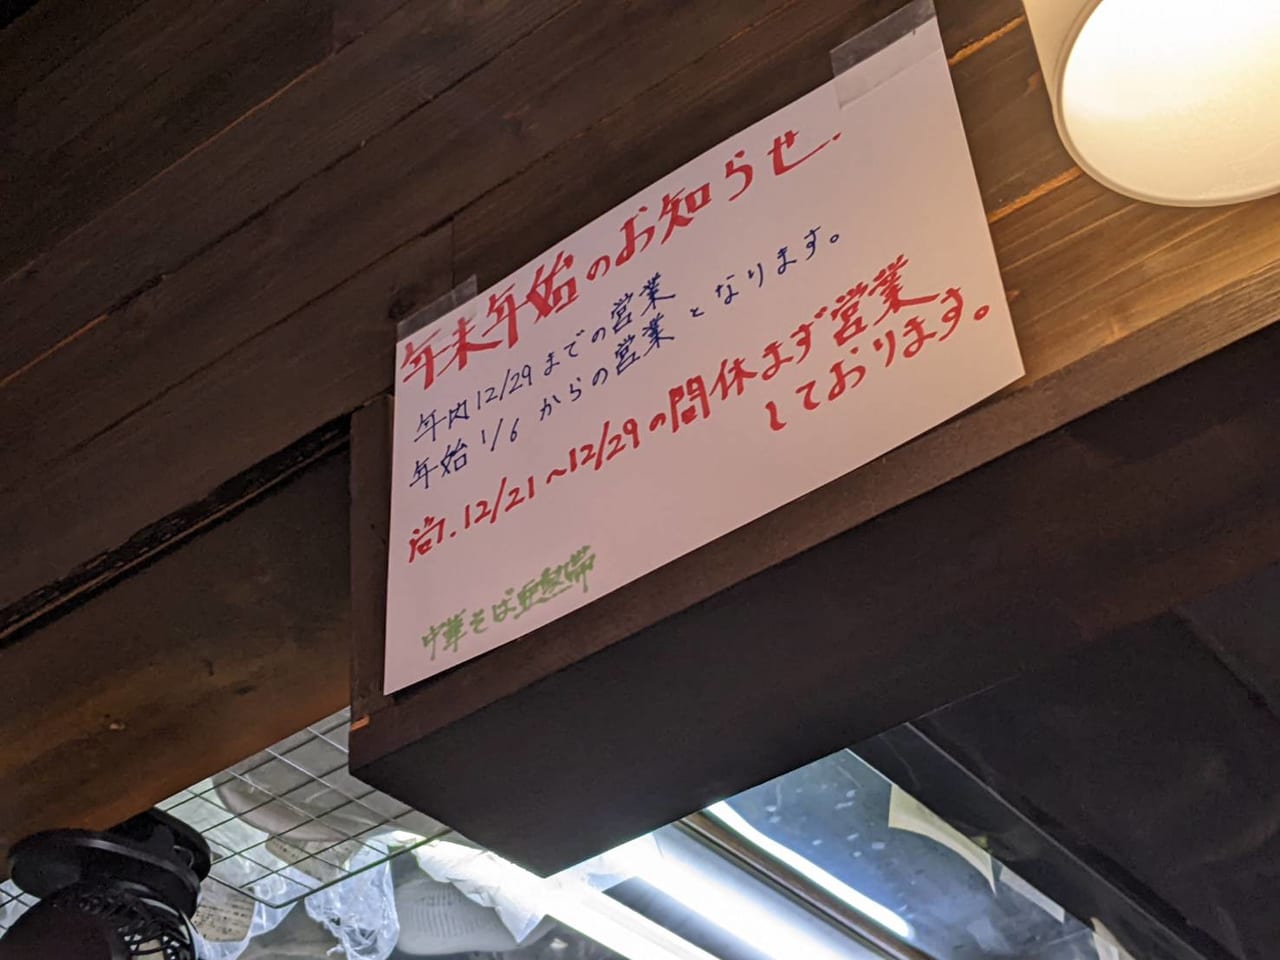 年末年始のお知らせ.
年内12/29までの営業
年始1/6からの営業となります。
尚.12/21〜12/29の間休まず営業
しております。
中華そば